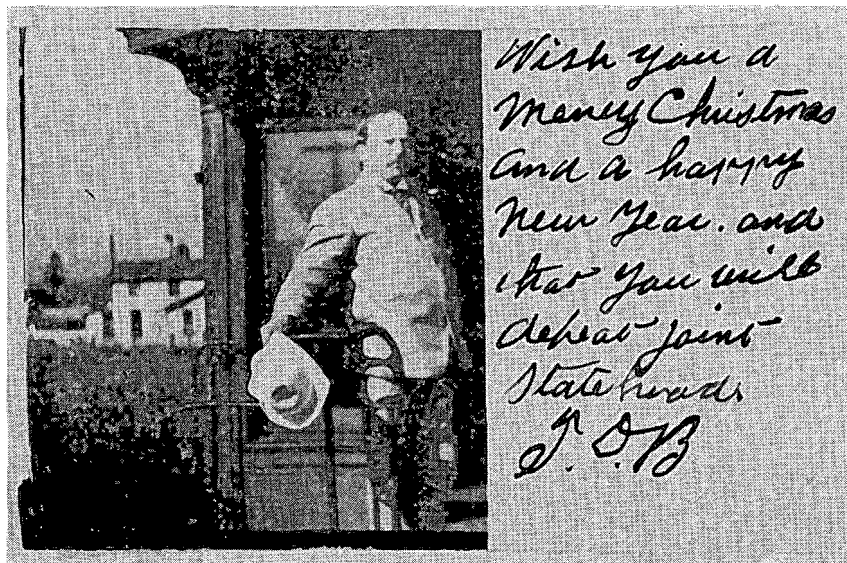 Wish you a
Merry Christmas
and a happy
New Year. and
that you will
defeat joint
Statehood.
J. D. B.